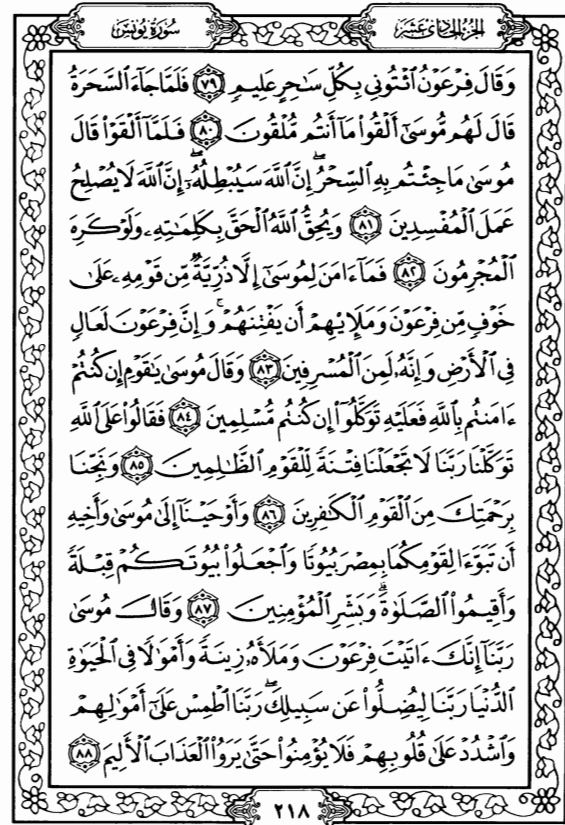 الجزء الحادي عشر
سورة يونس
وَقَالَ فِرْعَوْنُ ٱئْتُونِى بِكُلِّ سَٰحِرٍ عَلِيمٍ ۝٧٩ فَلَمَّا جَآءَ ٱلسَّحَرَةُ
قَالَ لَهُم مُّوسَىٰٓ أَلْقُوا۟ مَآ أَنتُم مُّلْقُونَ ۝٨٠ فَلَمَّآ أَلْقَوْا۟ قَالَ
مُوسَىٰ مَا جِئْتُم بِهِ ٱلسِّحْرُ ۖ إِنَّ ٱللَّهَ سَيُبْطِلُهُۥٓ ۖ إِنَّ ٱللَّهَ لَا يُصْلِحُ
عَمَلَ ٱلْمُفْسِدِينَ ۝٨١ وَيُحِقُّ ٱللَّهُ ٱلْحَقَّ بِكَلِمَٰتِهِۦ وَلَوْ كَرِهَ
ٱلْمُجْرِمُونَ ۝٨٢ فَمَآ ءَامَنَ لِمُوسَىٰٓ إِلَّا ذُرِّيَّةٌ مِّن قَوْمِهِۦ عَلَىٰ
خَوْفٍ مِّن فِرْعَوْنَ وَمَلَإِي۟هِمْ أَن يَفْتِنَهُمْ ۚ وَإِنَّ فِرْعَوْنَ لَعَالٍ
فِى ٱلْأَرْضِ وَإِنَّهُۥ لَمِنَ ٱلْمُسْرِفِينَ ۝٨٣ وَقَالَ مُوسَىٰ يَٰقَوْمِ إِن كُنتُمْ
ءَامَنتُم بِٱللَّهِ فَعَلَيْهِ تَوَكَّلُوٓا۟ إِن كُنتُم مُّسْلِمِينَ ۝٨٤ فَقَالُوا۟ عَلَى ٱللَّهِ
تَوَكَّلْنَا رَبَّنَا لَا تَجْعَلْنَا فِتْنَةً لِّلْقَوْمِ ٱلظَّٰلِمِينَ ۝٨٥ وَنَجِّنَا
بِرَحْمَتِكَ مِنَ ٱلْقَوْمِ ٱلْكَٰفِرِينَ ۝٨٦ وَأَوْحَيْنَآ إِلَىٰ مُوسَىٰ وَأَخِيهِ
أَن تَبَوَّءَا لِقَوْمِكُمَا بِمِصْرَ بُيُوتًا وَٱجْعَلُوا۟ بُيُوتَكُمْ قِبْلَةً
وَأَقِيمُوا۟ ٱلصَّلَوٰةَ ۗ وَبَشِّرِ ٱلْمُؤْمِنِينَ ۝٨٧ وَقَالَ مُوسَىٰ
رَبَّنَآ إِنَّكَ ءَاتَيْتَ فِرْعَوْنَ وَمَلَأَهُۥ زِينَةً وَأَمْوَٰلًا فِى ٱلْحَيَوٰةِ
ٱلدُّنْيَا رَبَّنَا لِيُضِلُّوا۟ عَن سَبِيلِكَ ۖ رَبَّنَا ٱطْمِسْ عَلَىٰٓ أَمْوَٰلِهِمْ
وَٱشْدُدْ عَلَىٰ قُلُوبِهِمْ فَلَا يُؤْمِنُوا۟ حَتَّىٰ يَرَوُا۟ ٱلْعَذَابَ ٱلْأَلِيمَ ۝٨٨
٢١٨